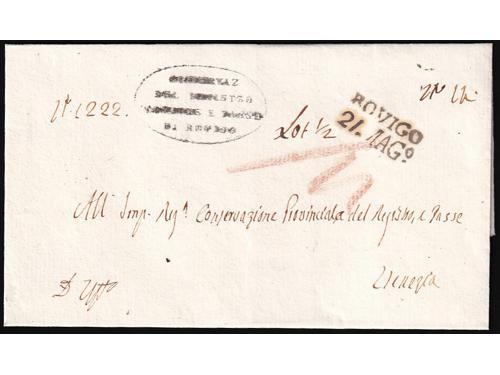 CONSERVAZ
DEL REGISTRO
E TASSE
DI ROVIGO
N.º 1222.
Lot ½
ROVIGO
21. MAG.º
All' Imp. Reg.ª Conservazione Provinciale del Registro, e Tasse
D' Uffº
Venezia